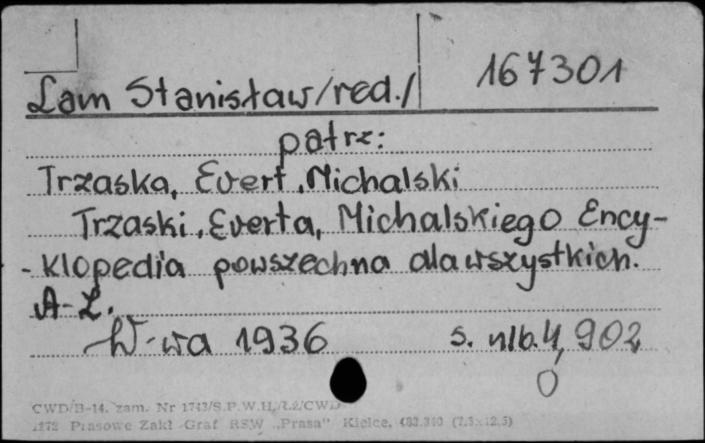 Lam Stanisław/red./ 167301
patrz:
Trzaska, Evert, Michalski
Trzaski, Everta, Michalskiego Ency-
- klopedia powszechna dla wszystkich.
A-Z.
W-wa 1936 s. nlb. 4, 902
0
CWD/B-14. zam. Nr 1743/S.P.W.H./
Prasowe Zakł Graf RSW „Prasa" Kielce.